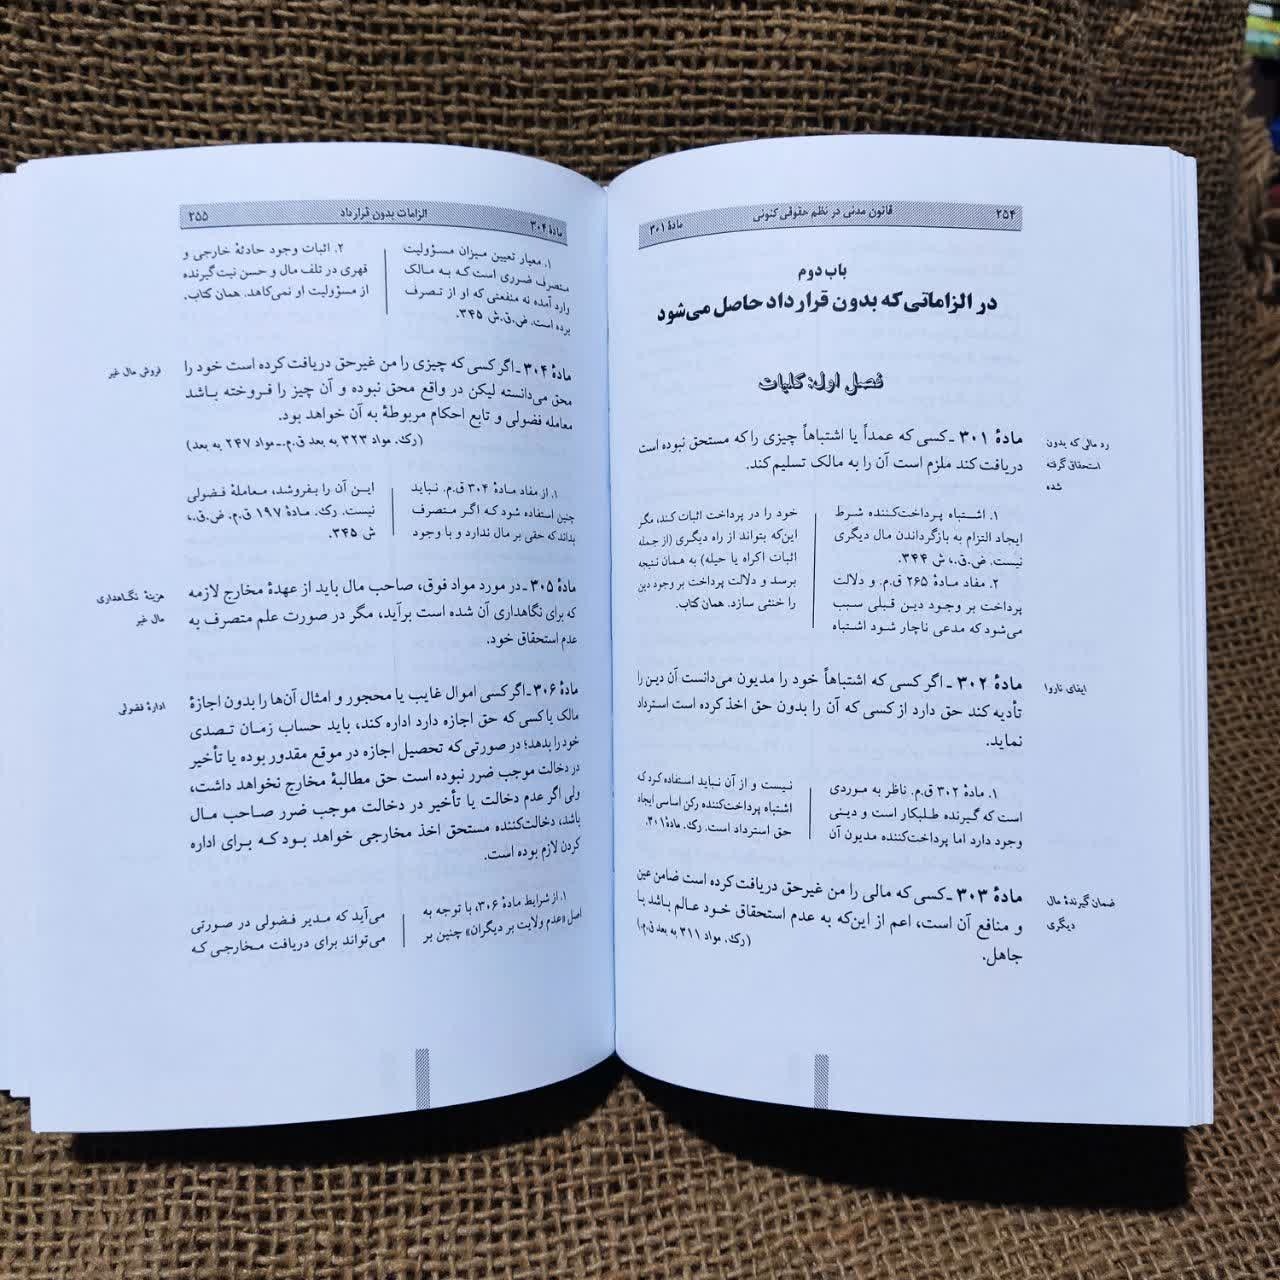 ۲۵۴
قانون مدنی در نظم حقوقی کنونی
مادهٔ ۳۰۱
باب دوم
در الزاماتی که بدون قرارداد حاصل می‌شود
فصل اول: کلیات
مادهٔ ۳۰۱ ـ کسی که عمداً یا اشتباهاً چیزی را که مستحق نبوده است
دریافت کند ملزم است آن را به مالک تسلیم کند.
رد مالی که بدون
استحقاق گرفته
شده
۱. اشتباه پرداخت‌کننده شرط
ایجاد التزام به بازگرداندن مال دیگری
نیست. ض.ق.، ش ۳۴۴.
۲. مفاد مادهٔ ۲۶۵ ق.م. و دلالت
پرداخت بر وجود دین قبلی سبب
می‌شود که مدعی ناچار شود اشتباه
خود را در پرداخت اثبات کند، مگر
این‌که بتواند از راه دیگری (از جمله
اثبات اکراه یا حیله) به همان نتیجه
برسد و دلالت پرداخت بر وجود دین
را خنثی سازد. همان کتاب.
مادهٔ ۳۰۲ ـ اگر کسی که اشتباهاً خود را مدیون می‌دانست آن دین را
تأدیه کند حق دارد از کسی که آن را بدون حق اخذ کرده است استرداد
نماید.
ایفای ناروا
۱. مادهٔ ۳۰۲ ق.م. ناظر به موردی
است که گیرنده طلبکار است و دینی
وجود دارد اما پرداخت‌کننده مدیون آن
نیست و از آن نباید استفاده کرد که
اشتباه پرداخت‌کننده رکن اساسی ایجاد
حق استرداد است. رک. مادهٔ ۳۰۱.
مادهٔ ۳۰۳ ـ کسی که مالی را من غیرحق دریافت کرده است ضامن عین
و منافع آن است، اعم از این‌که به عدم استحقاق خود عالم باشد یا
جاهل.
(رک. مواد ۳۱۱ به بعد ق.م.)
ضمان گیرندهٔ مال
دیگری
مادهٔ ۳۰۴
الزامات بدون قرارداد
۲۵۵
۱. معیار تعیین میزان مسؤولیت
متصرف ضرری است که به مالک
وارد آمده نه منفعتی که او از تصرف
برده است. ض.ق.ش ۳۴۵.
۲. اثبات وجود حادثهٔ خارجی و
قهری در تلف مال و حسن نیت گیرنده
از مسؤولیت او نمی‌کاهد. همان کتاب.
مادهٔ ۳۰۴ ـ اگر کسی که چیزی را من غیرحق دریافت کرده است خود را
محق می‌دانسته لیکن در واقع محق نبوده و آن چیز را فروخته باشد
معامله فضولی و تابع احکام مربوطهٔ به آن خواهد بود.
(رک. مواد ۳۲۳ به بعد ق.م.ـ مواد ۲۴۷ به بعد)
فروش مال غیر
۱. از مفاد مادهٔ ۳۰۴ ق.م. نباید
چنین استفاده شود که اگر متصرف
بداند که حقی بر مال ندارد و با وجود
این آن را بفروشد، معاملهٔ فضولی
نیست. رک. مادهٔ ۱۹۷ ق.م. ض.ق.،
ش ۳۴۵.
مادهٔ ۳۰۵ ـ در مورد مواد فوق، صاحب مال باید از عهدهٔ مخارج لازمه
که برای نگاهداری آن شده است برآید، مگر در صورت علم متصرف به
عدم استحقاق خود.
هزینهٔ نگاهداری
مال غیر
مادهٔ ۳۰۶ ـ اگر کسی اموال غایب یا محجور و امثال آن‌ها را بدون اجازهٔ
مالک یا کسی که حق اجازه دارد اداره کند، باید حساب زمان تصدی
خود را بدهد؛ در صورتی که تحصیل اجازه در موقع مقدور بوده یا تأخیر
در دخالت موجب ضرر نبوده است حق مطالبهٔ مخارج نخواهد داشت،
ولی اگر عدم دخالت یا تأخیر در دخالت موجب ضرر صاحب مال
باشد، دخالت‌کننده مستحق اخذ مخارجی خواهد بود که برای اداره
کردن لازم بوده است.
ادارهٔ فضولی
۱. از شرایط مادهٔ ۳۰۶، با توجه به
اصل «عدم ولایت بر دیگران» چنین بر
می‌آید که مدیر فضولی در صورتی
می‌تواند برای دریافت مخارجی که